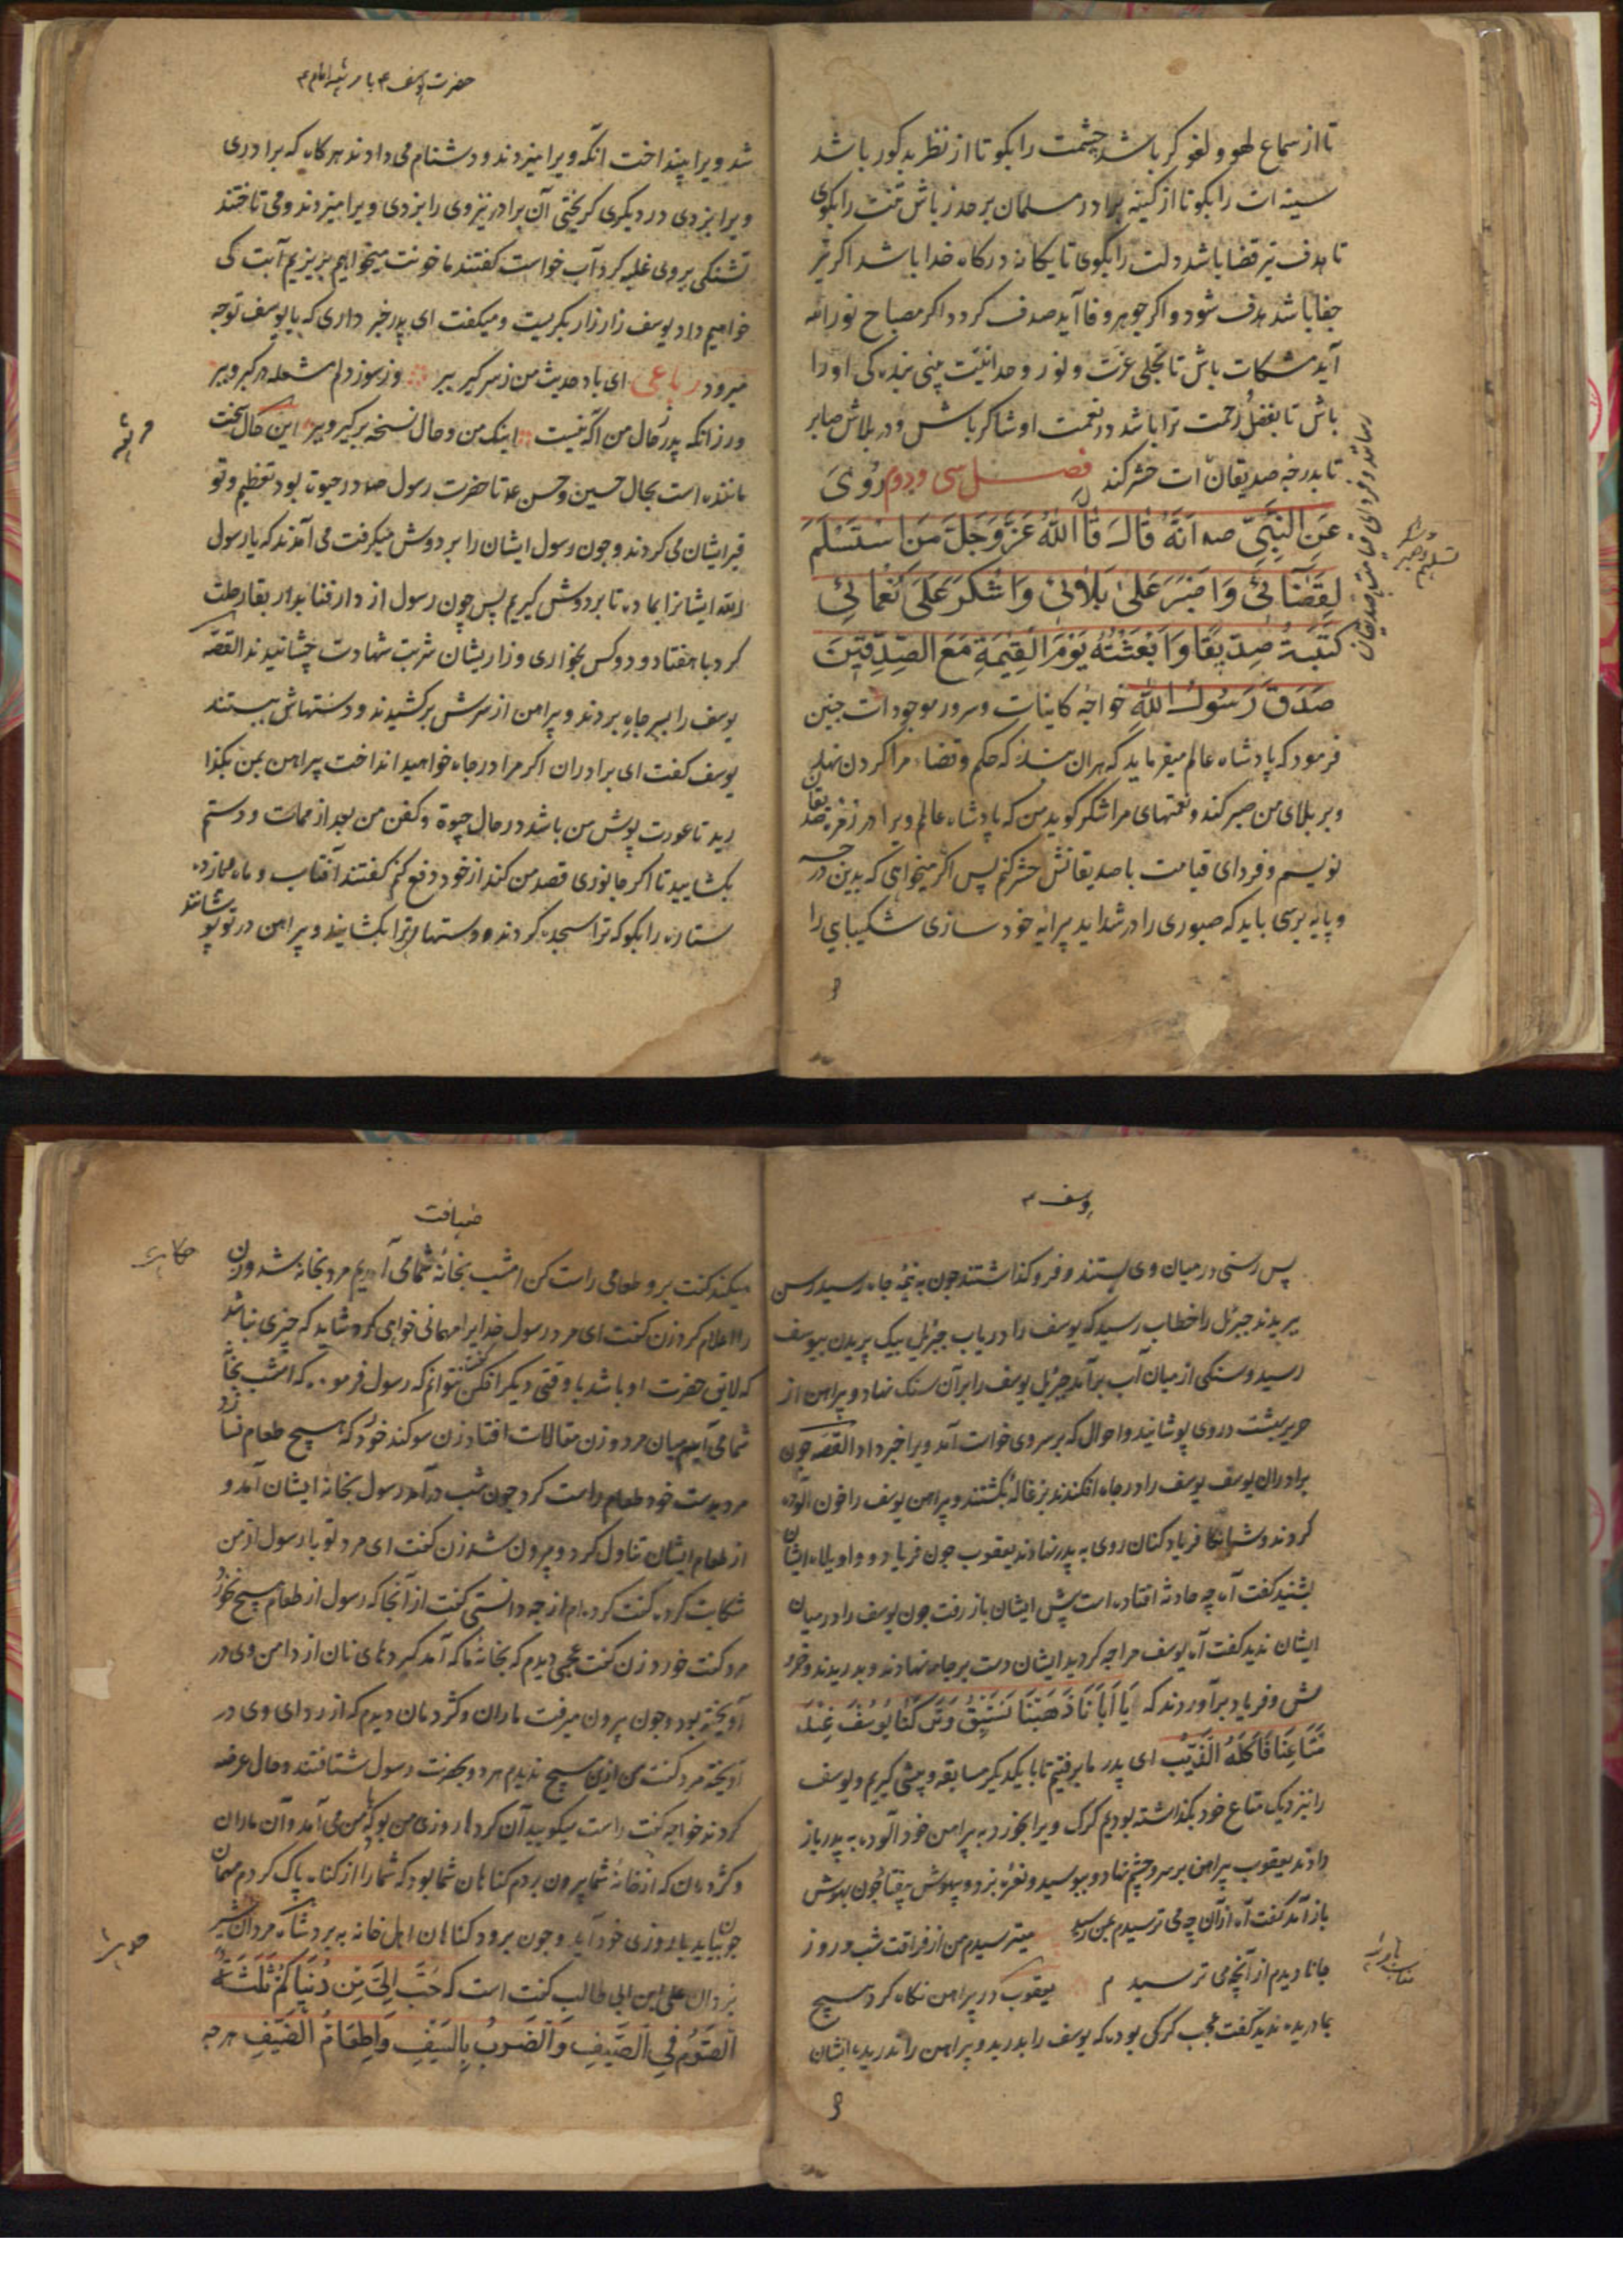 تا از سماع لهو و لغو کر باشد چشمت را بکو تا از نظر بد کور باشد
سینه ات را بکو تا از کینه برادر مسلمان بر حذر باش تنت را بکوی
تا هدف تیر قضا باشد دلت را بکوی تا یکانه درکاه خدا باشد اکر تیر
جفا باشد هدف شود و اکر جوهر وفا آید صدف کردد اکر مصباح نور الله
آید مشکات باش تا تجلی عزت و نور وحدانیت بینی بنده کی او را
باش تا بفضل رحمت ترا باشد در نعمت او شاکر باش و در بلاش صابر
تا بدرجه صدیقان ات حشر کند فصل سی و دوم رُوِیَ
عَنِ النَّبِیِّ صه اَنَّهُ قَالَ قَالَ اللّٰهُ عَزَّ وَجَلَّ مَنِ اسْتَسْلَمَ
لِقَضَائِی وَاصْبَرَ عَلٰی بَلَائِی وَاشْکَرَ عَلٰی نَعْمَائِی
کَتَبْتُهُ صِدِّیقًا وَابْعَثْتُهُ یَوْمَ الْقِیٰمَةِ مَعَ الصِّدِّیقِینَ
صَدَقَ رَسُولُ اللّٰهِ خواجه کاینات و سرور موجودات چنین
فرمود که پادشاه عالم میفرماید که هران بنده که حکم و قضاء مرا کردن نهد
و بر بلای من صبر کند و نعمتهای مرا شکر کوید من که پادشاه عالم ویرا در زمره صدیقان
نویسم و فردای قیامت با صدیقانش حشر کنم پس اکر میخواهی که بدین درجه
و پایه برسی باید که صبوری را در شداید پیرایه خود سازی شکیبایی را
حضرت یوسف ع با مرثیه امام ع
شد ویرا بینداخت انکه ویرا میزدند و دشنام می دادند هرکاه که برادری
ویرا بزدی در دیکری کریختی آن برادر نیز وی را بزدی ویرا میزدند و می تاختند
تشنکی بر وی غلبه کرد آب خواست کفتند ما خونت میخواهیم بریزیم آبت کی
خواهیم داد یوسف زار زار بکریست و میکفت ای پدر خبر داری که با یوسف توجه
میرود رباعی ای باد حدیث من ز سر کیر ببر وز سوز دلم مشعله بر کیر و ببر
ور زانکه پدر ز حال من اکه نیست اینک من و حال نسخه بر کیر و ببر این حال سخت
مرثیه
ماننده است بحال حسین و حسن ع تا حضرت رسول صه در حیوة بود تعظیم و تو
قیر ایشان می کردند و چون رسول ایشان را بر دوش میکرفت می آمدند که یا رسول
الله ایشانرا بما ده تا بر دوش کیریم پس چون رسول از دار فنا بدار بقا رحلت
کرد با هفتاد و دو کس بخواری و زاریشان شربت شهادت چشانیدند القصه
یوسف را بسر چاه بردند و پیراهن از سرش برکشیدند و دستهاش ببستند
یوسف کفت ای برادران اکر مرا در چاه خواهید انداخت پیراهن بمن بکذا
رید تا عورت پوش من باشد در حال حیوة و کفن من بعد از ممات و دستم
بکشایید تا اکر جانوری قصد من کند از خود دفع کنم کفتند آفتاب و ماه و یازده
ستاره را بکو که ترا سجده کردند و دستهای ترا بکشایند و پیراهن در تو پوشانند
یوسف ع
پس رسنی در میان وی بستند و فرو کذاشتند چون به نیمه چاه رسید رسن
ببریدند جبرئیل را خطاب رسید که یوسف را دریاب جبرئیل بیک پریدن بیوسف
رسید و سنکی از میان آب برآمد جبرئیل یوسف را بر آن سنک نهاد و پیراهن از
حریر بهشت در وی پوشانید و احوال که بر سر وی خواست آمد ویرا خبر داد القصه چون
برادران یوسف یوسف را در چاه افکندند بزغاله بکشتند و پیراهن یوسف را خون آلوده
کردند و شبانکاه فریاد کنان روی به پدر نهادند یعقوب چون فریاد و واویلاه ایشان
بشنید کفت آه چه حادثه افتاده است پیش ایشان باز رفت چون یوسف را در میان
ایشان ندید کفت آه یوسف مرا چه کردید ایشان دست بر جامه نهادند و بدریدند و خرو
ش و فریاد برآوردند که یَا اَبَانَا ذَهَبْنَا نَسْتَبِقُ وَتَرَکْنَا یُوسُفَ عِنْدَ
مَتَاعِنَا فَاَکَلَهُ الذِّئْبُ ای پدر ما برفتیم تا با یکدیکر مسابقه و پیشی کیریم و یوسف
را نزدیک متاع خود بکذاشته بودیم کرک ویرا بخورد به پیراهن خون آلوده به پدر باز
دادند یعقوب پیراهن بر سر و چشم نهاد و ببوسید و نعره بزد و بیهوش بیفتاد چون بهوش
باز آمد کفت آه از آن چه می ترسیدم بمن رسید میترسیدم من از فراقت شب و روز
جانا دیدم از آنچه می ترسیدم یعقوب در پیراهن نکاه کرد هیچ
جا دریده ندید کفت عجب کرکی بوده که یوسف را بدرید و پیراهن را ندرید ایشان
ضیافت
میکند کفت برو طعامی راست کن امشب بخانه شما می آییم مرد بخانه شد و زن
حکایت
را اعلام کرد زن کفت ای مرد رسول خدایرا مهمانی خواهی کرد شاید که چیزی نباشد
که لایق حضرت او باشد با وقتی دیکر افکن کفت نتوانم که رسول فرموده که امشب بخانه
شما می آییم میان مرد و زن مقالات افتاد زن سوکند خورد که هیچ طعام نسازد
مرد بدست خود طعام راست کرد چون شب درآمد رسول بخانه ایشان آمد و
از طعام ایشان تناول کرد و بیرون شد زن کفت ای مرد تو با رسول از من
شکایت کرده کفت کرده ام از چه دانستی کفت از آنجا که رسول از طعام هیچ نخورد
مرد کفت خورد زن کفت عجبی دیدم که بخانه ما که آمد کردهای نان از دامن وی در
آویخته بود و چون بیرون میرفت ماران و کژدمان دیدم که از ردای وی در
آویخته مرد کفت من ازین هیچ ندیدم هر دو بحضرت رسول شتافتند و حال عرضه
کردند خواجه کفت راست میکویید آن کردها روزی من بود که با من می آمد و آن ماران
و کژدمان که از خانه شما بیرون بردم کناهان شما بود که شما را از کناه پاک کردم مهمان
چون بیاید با روزی خود آید و چون برود کناهان اهل خانه به برد شاه مردان شیر
حدیث
یزدان علی ابن ابی طالب کفت است که حُبِّبَ اِلَیَّ مِنْ دُنْیَاکُمْ ثَلٰثَةٌ
اَلصَّوْمُ فِی الصَّیْفِ وَالضَّرْبُ بِالسَّیْفِ وَاِطْعَامُ الضَّیْفِ هرچه